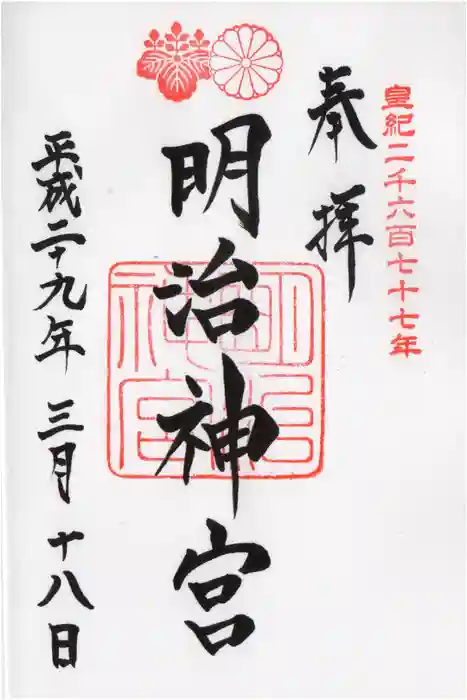 皇紀二千六百七十七年
奉拝
明治神宮
明治神宮
平成二十九年三月十八日